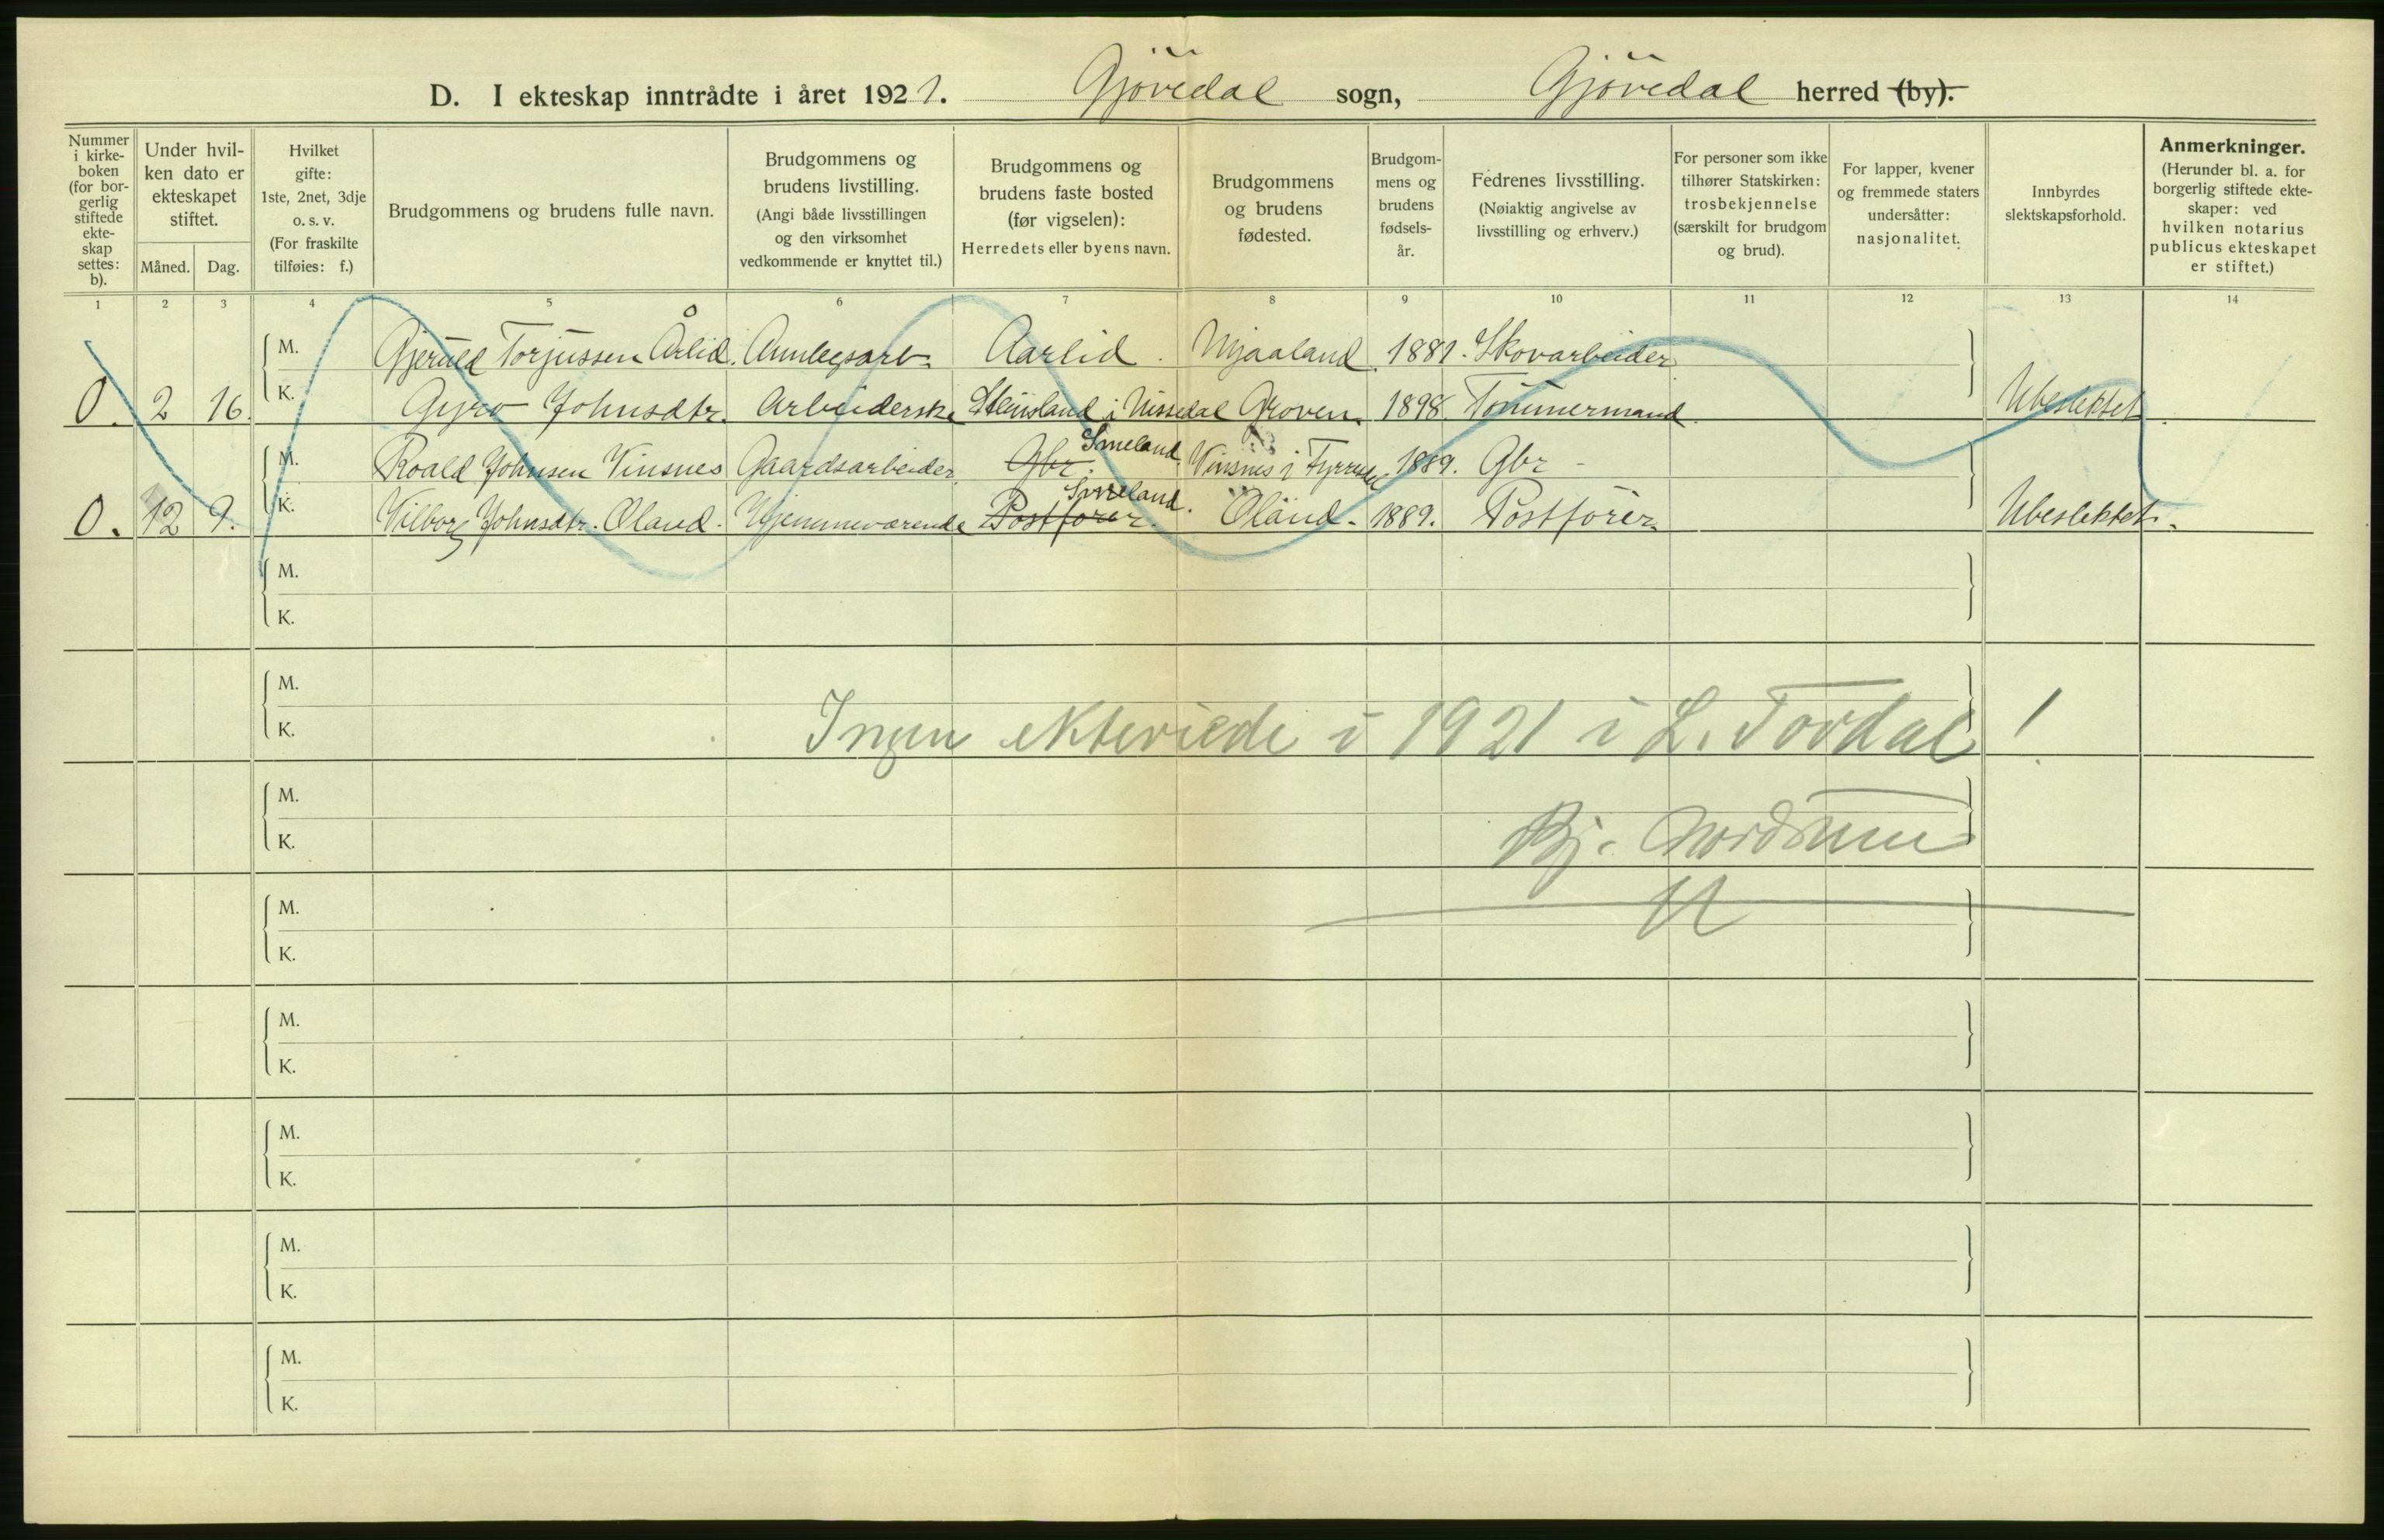 D. I ekteskap inntrådte i året 1921. Gjövedal sogn, Gjövedal herred (by).
Nummer i kirke-boken (for bor-gerlig stiftede ekte-skap settes: b).
Under hvil-ken dato er ekteskapet stiftet.
Måned. Dag.
Hvilket gifte: 1ste, 2net, 3dje o. s. v. (For fraskilte tilføies: f.)
Brudgommens og brudens fulle navn.
Brudgommens og brudens livstilling. (Angi både livsstillingen og den virksomhet vedkommende er knyttet til.)
Brudgommens og brudens faste bosted (før vigselen): Herredets eller byens navn.
Brudgommens og brudens fødested.
Brudgom-mens og brudens fødsels-år.
Fedrenes livsstilling. (Nøiaktig angivelse av livsstilling og erhverv.)
For personer som ikke tilhører Statskirken: trosbekjennelse (særskilt for brudgom og brud).
For lapper, kvener og fremmede staters undersåtter: nasjonalitet.
Innbyrdes slektskapsforhold.
Anmerkninger. (Herunder bl. a. for borgerlig stiftede ekte-skaper: ved hvilken notarius publicus ekteskapet er stiftet.)
1 2 3 4 5 6 7 8 9 10 11 12 13 14
M. Gjeruld Torjussen Årlid. Annlegsarb. Aarlid. Mjaaland 1881. Skovarbeider
0. 2 16. K. Gyro Johnsdtr. Arbeiderske Steinsland i Nissedal Groven. 1898. Tömmermand. Ubeslektet.
M. Roald Johnsen Vinsnes Gaardsarbeider. Gbr. Smeland. Vinsnes i Tyrredal 1889. Gbr -
0. 12 9. K. Vilborg Johnsdtr. Øland. Hjemmeværende Postförer. Smeland. Öland. 1889. Postförer. Ubeslektet.
M.
K.
M.
K.
Ingen ekteviede i 1921 i L. Tovdal!
M.
K.
Bj.
M.
K.
M.
K.
M.
K.
M.
K.
M.
K.